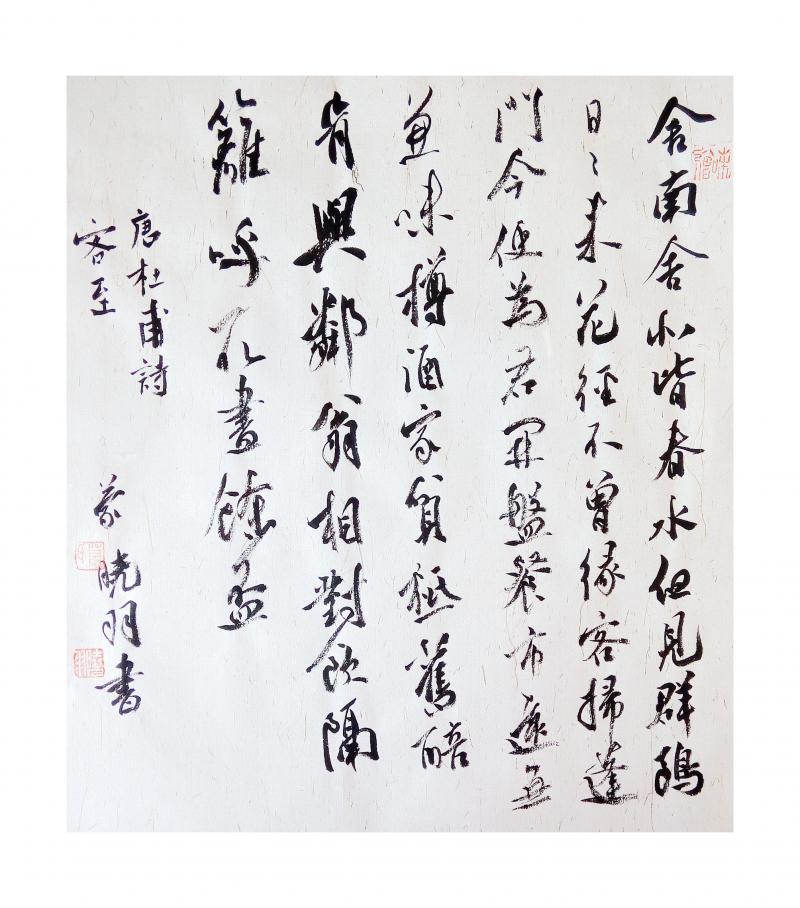 舍南舍北皆春水但見群鷗
日〻来花徑不曾緣客掃蓬
門今便為君開盤餐市遠無
兼味樽酒家貧秪舊醅
肯與鄰翁相對飲隔
籬呼取盡餘盃
唐杜甫詩
客至
曉羽書